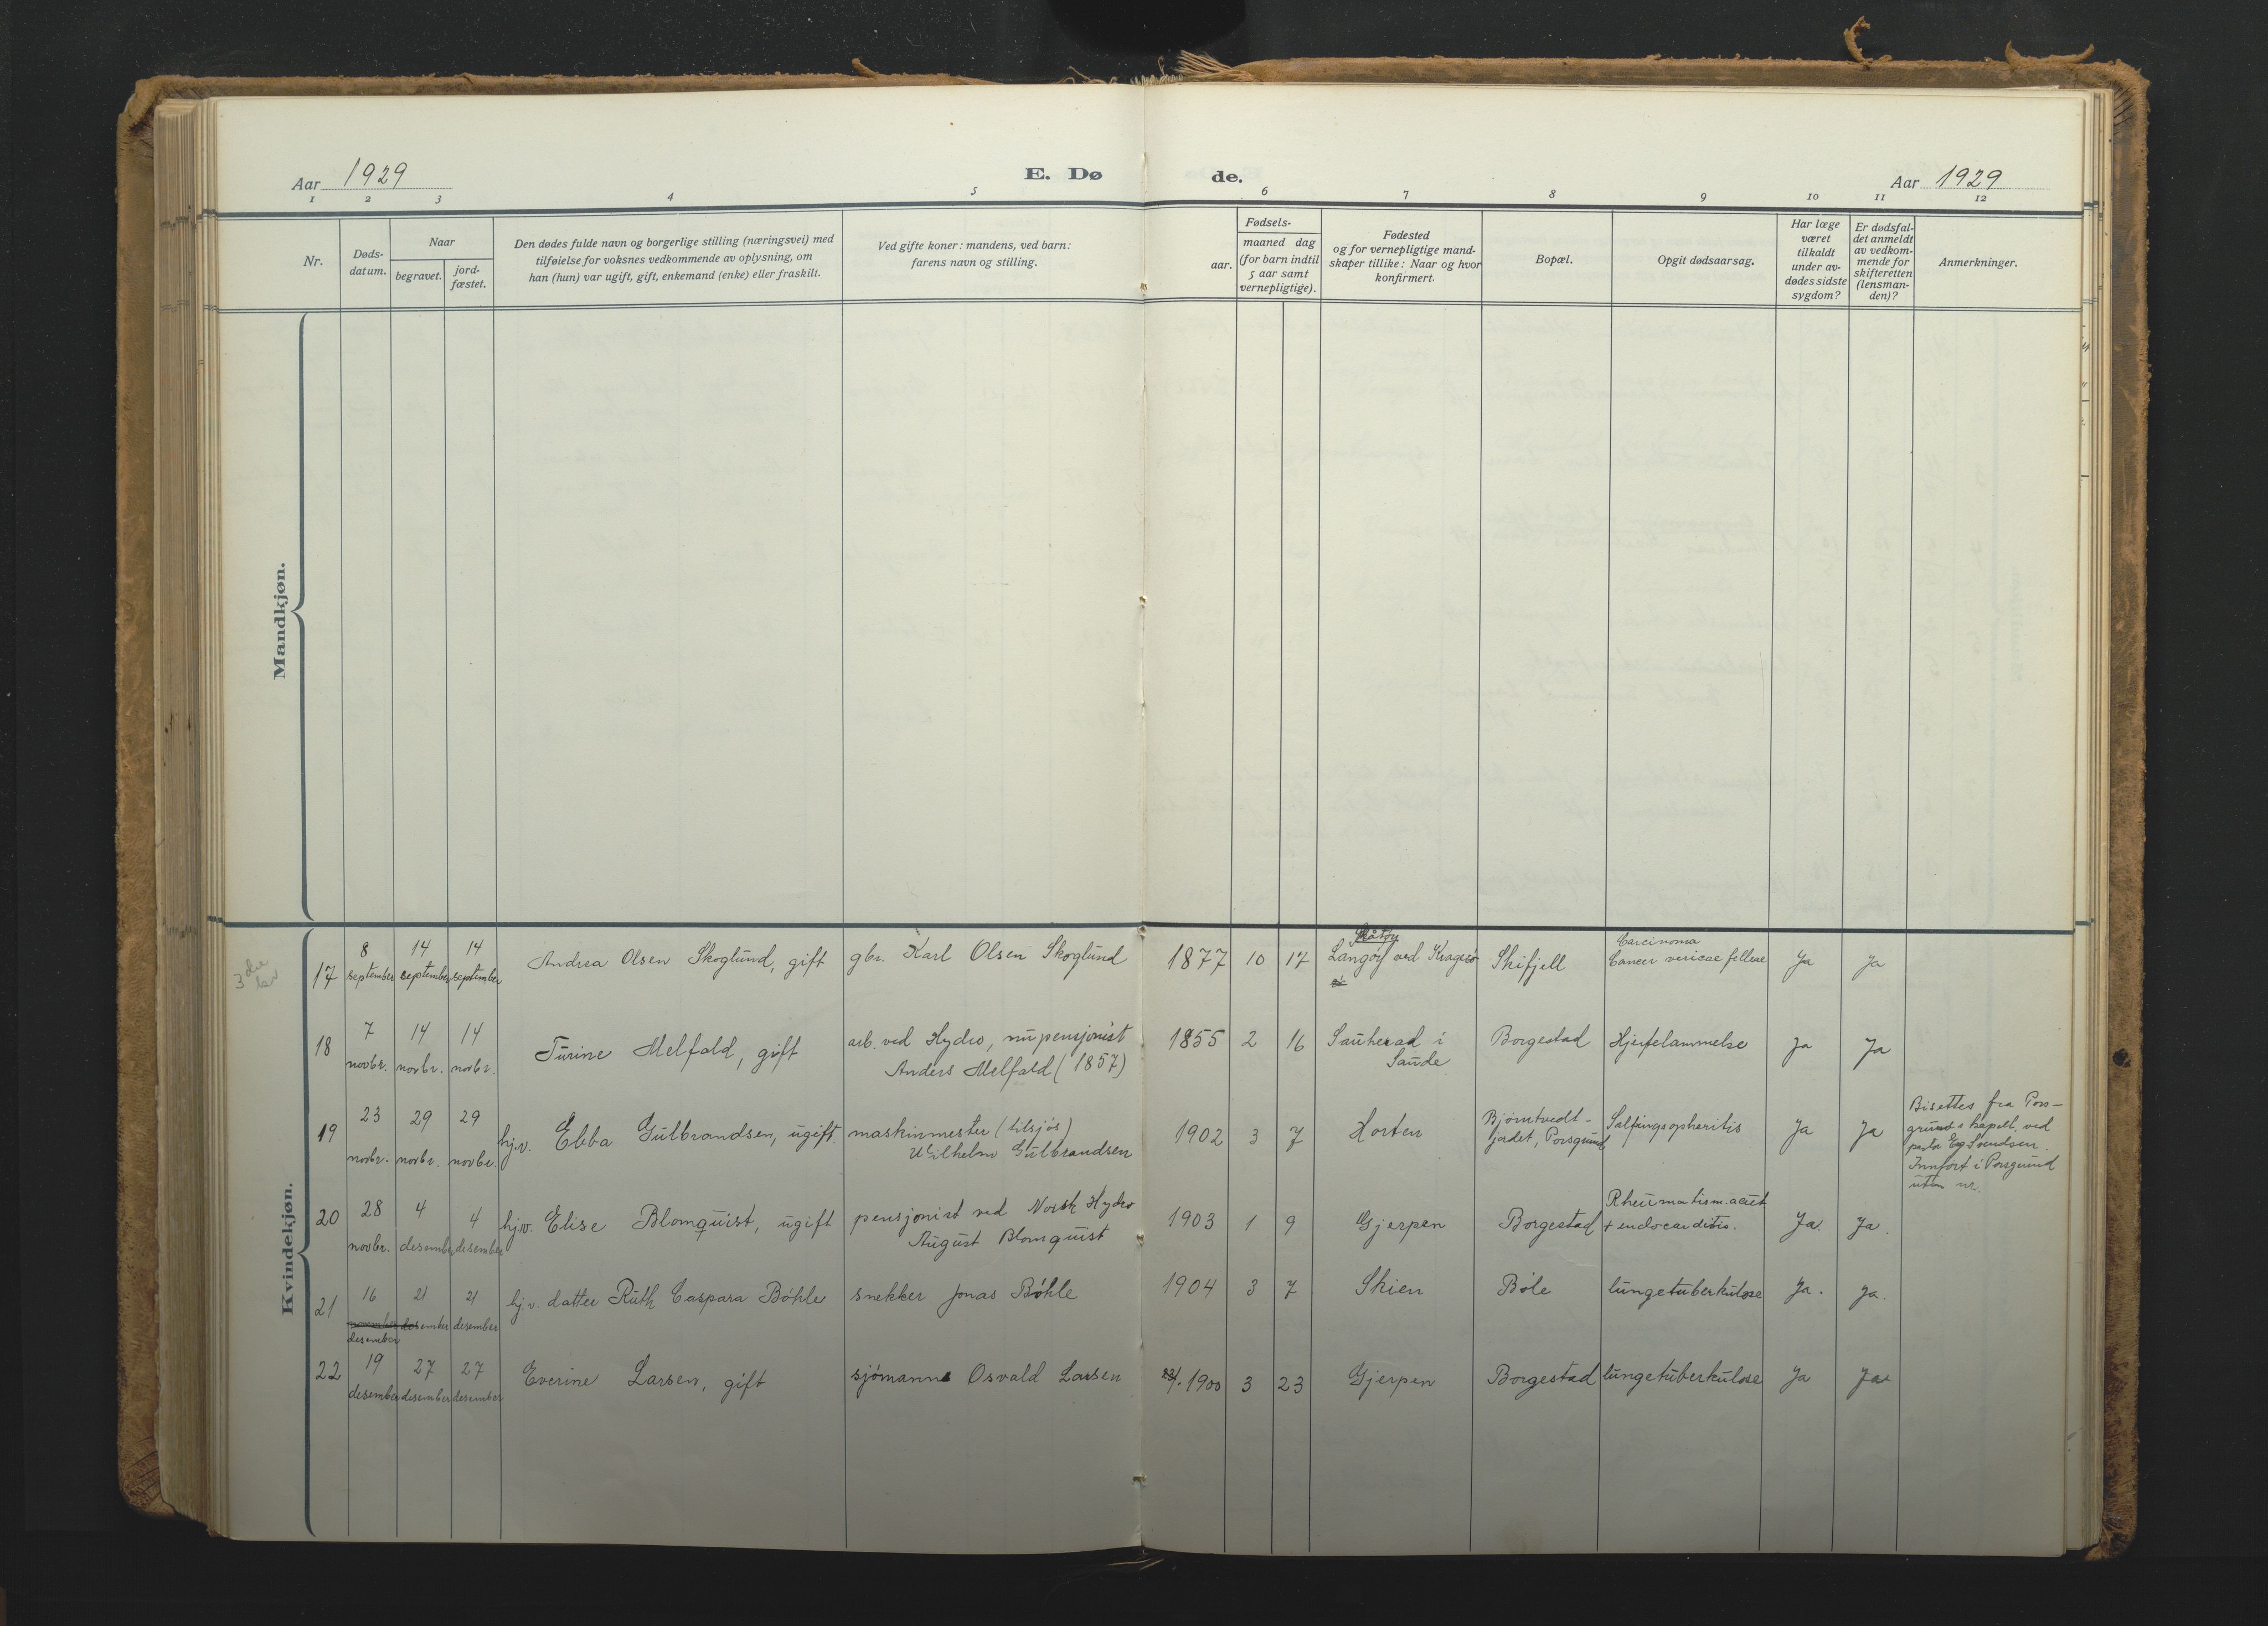 Aar 1929
E. Dø
de.
Aar 1929
1 2 3 4 5 6 7 8 9 10 11 12
Nr.
Døds-
datum.
Naar
begravet.
jord-
fæstet.
Den dødes fulde navn og borgerlige stilling (næringsvei) med
tilføielse for voksnes vedkommende av oplysning, om
han (hun) var ugift, gift, enkemand (enke) eller fraskilt.
Ved gifte koner: mandens, ved barn:
farens navn og stilling.
aar.
Fødsels-
maaned dag
(for barn indtil
5 aar samt
vernepligtige).
Fødested
og for vernepligtige mand-
skaper tillike: Naar og hvor
konfirmert.
Bopæl.
Opgit dødsaarsag.
Har læge
været
tilkaldt
under av-
dødes sidste
sygdom?
Er dødsfal-
det anmeldt
av vedkom-
mende for
skifteretten
(lensman-
den)?
Anmerkninger.
Mandkjøn.
Kvindekjøn.
17
8
september
14
september
14
september
Andrea Olsen Skoglund, gift
gbr. Karl Olsen Skoglund
1877
10
17
Skåtøy
Langøy ved Kragerø
Skifjell
Carcinoma
Cancer
Ja
Ja
18
7
novbr.
14
novbr.
14
novbr.
Turine Melfald, gift
arb. ved Hydro, nu pensjonist
Anders Melfald (1857)
1855
2
16
Sauherad i
Saude
Borgestad
Hjertelammelse
Ja
Ja
19
23
novbr.
29
novbr.
29
novbr.
hjv. Ebba Gulbrandsen, ugift
maskinmester (tilsjøs)
Wilhelm Gulbrandsen
1902
3
7
Horten
Bjørntvedt-
jordet, Porsgrund
Salpingsopheritis
Ja
Ja
Bisettes fra Pors-
grunds kapell, ved
Svendsen.
Innført i Porsgrund
uten nr.
20
28
novbr.
4
desember
4
desember
hjv. Elise Blomquist, ugift
pensjonist ved Norsk Hydro
August Blomquist
1903
1
9
Gjerpen
Borgestad
Rheumatism. acut
+ endocarditis.
Ja
Ja.
21
16
november
desember
21
desember
21
desember
hj.v. datter Ruth Caspara Bøhle
snekker Jonas Bøhle
1904
3
7
Skien
Bøle
lungetuberkulose
Ja.
Ja.
22
19
desember
27
desember
27
desember
Everine Larsen, gift
sjømann Osvald Larsen
1900
3
23
Gjerpen
Borgestad
lungetuberkulose
Ja
Ja